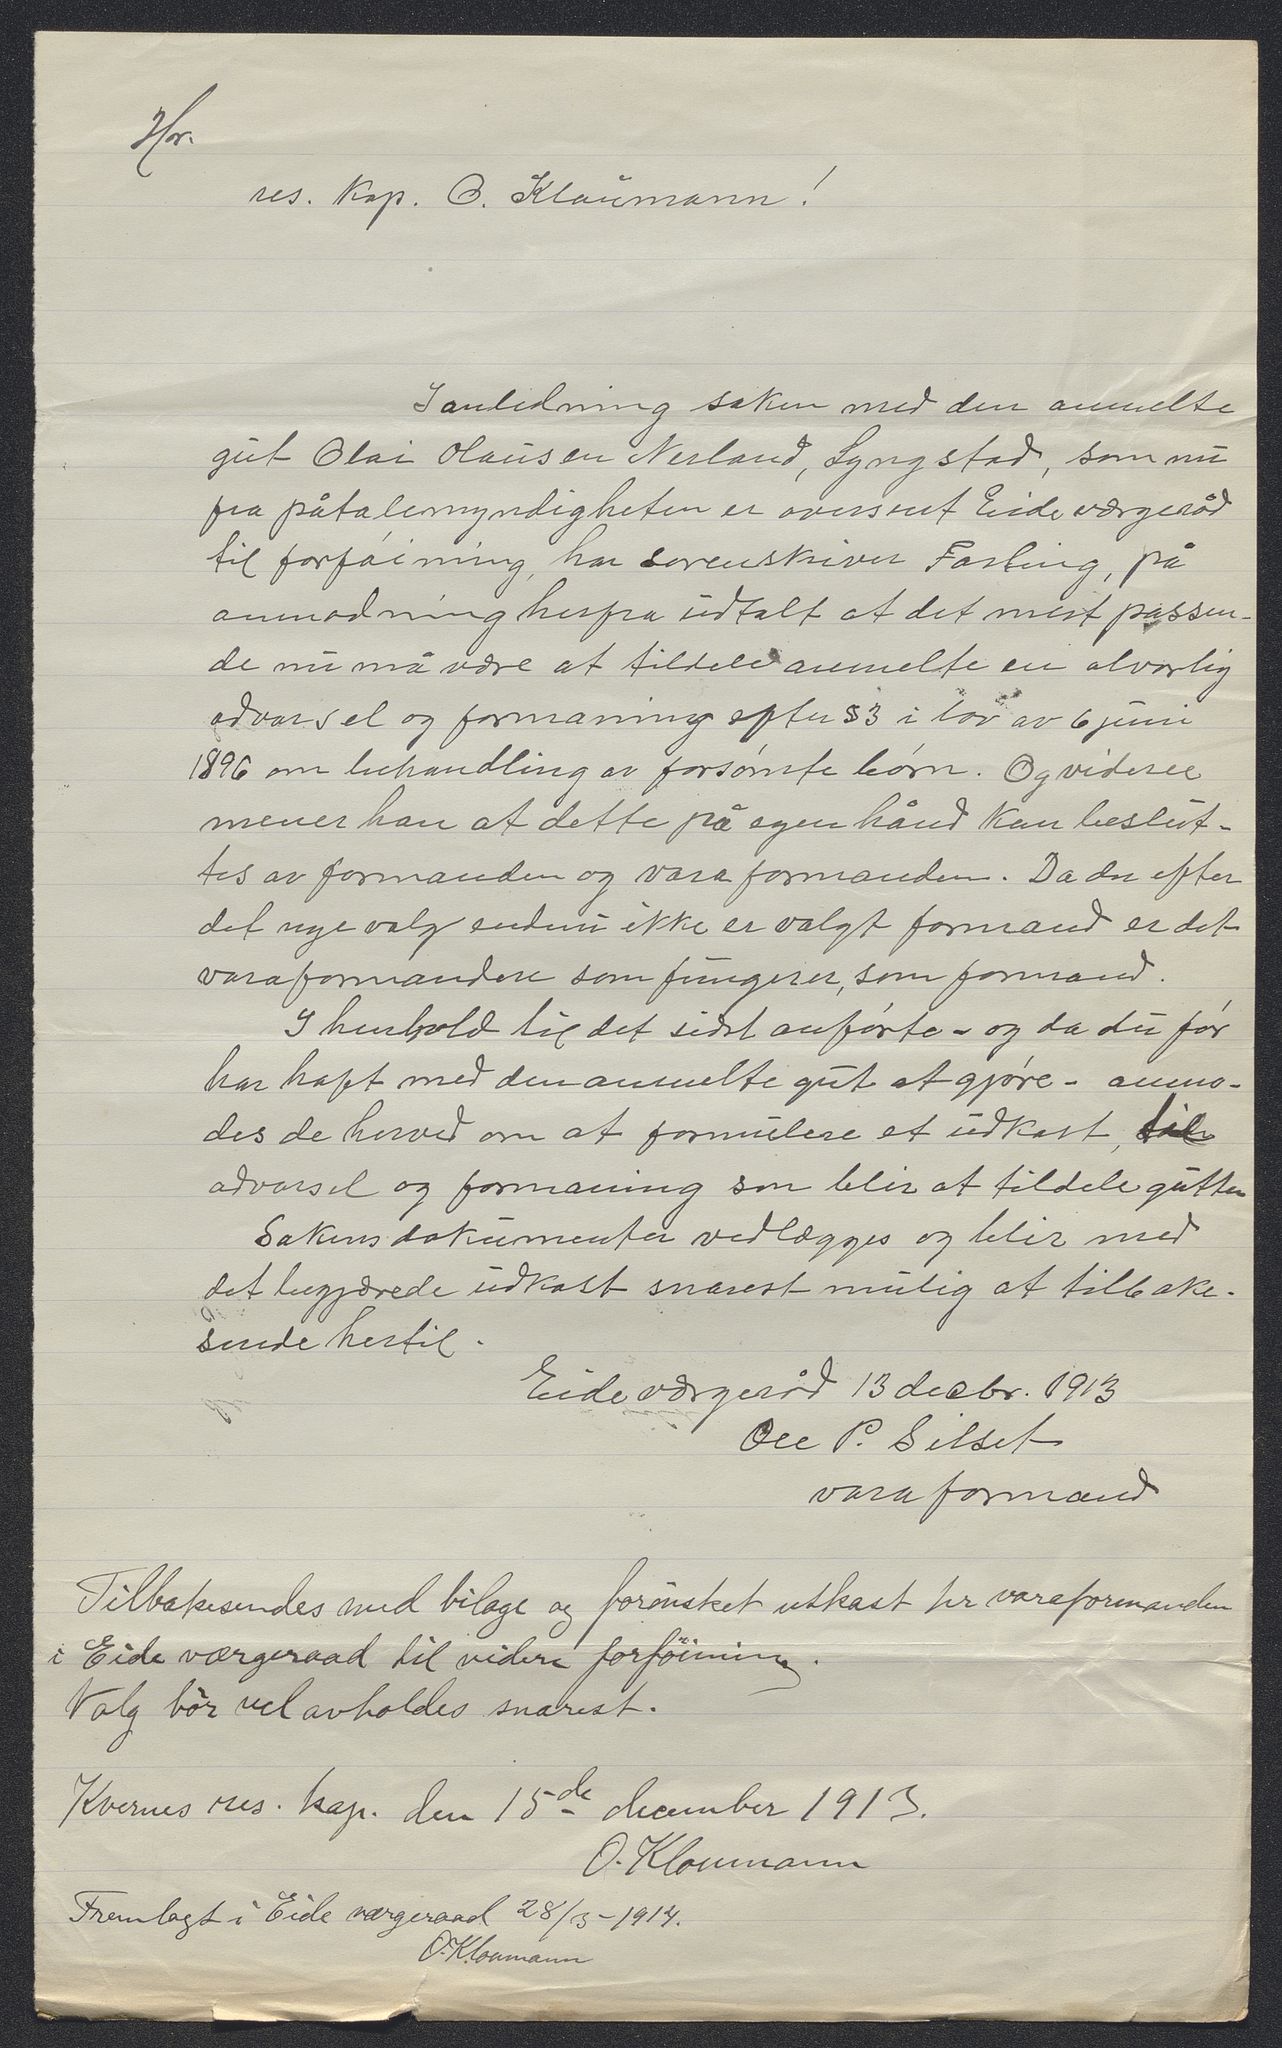 Hr.
res. Kap. O. Klaumann!
I anledning saken med den anmelte
gut Olai Olausen Nerland, Lyngstad, som nu
fra påtalemyndigheten er oversent Eide værgeråd
til forføining, har sorenskriver Fasting, på
anmodning herfra udtalt at det mest passen-
de nu må være at tildele anmelte en alvorlig
advarsel og formaning efter § 3 i lov av 6 juni
1896 om behandling av forsømte børn. Og videre
mener han at dette på egen hånd kan beslut-
tes av formanden og varaformanden. Da der efter
det nye valg endnu ikke er valgt formand er det
varaformanden som fungerer, som formand.
I henhold til det sidst anførte - og da du før
har haft med den anmelte gut at gjøre - anmo-
des de herved om at formulere et udkast, til
advarsel og formaning som blir at tildele gutten
Sakens dokumenter vedlægges og blir med
det begjærede udkast snarest mulig at tilbake-
sende hertil.
Eide værgeråd 13 decbr. 1913
Ole P. Silset
varaformand
Tilbakesendes med bilage og forönsket utkast hr varaformanden
i Eide værgeraad til videre forföining.
Valg bör vel avholdes snarest.
Kvernes res. kap. den 15de december 1913.
O. Kloumann
Fremlagt i Eide værgeraad 28/3-1914.
O. Kloumann